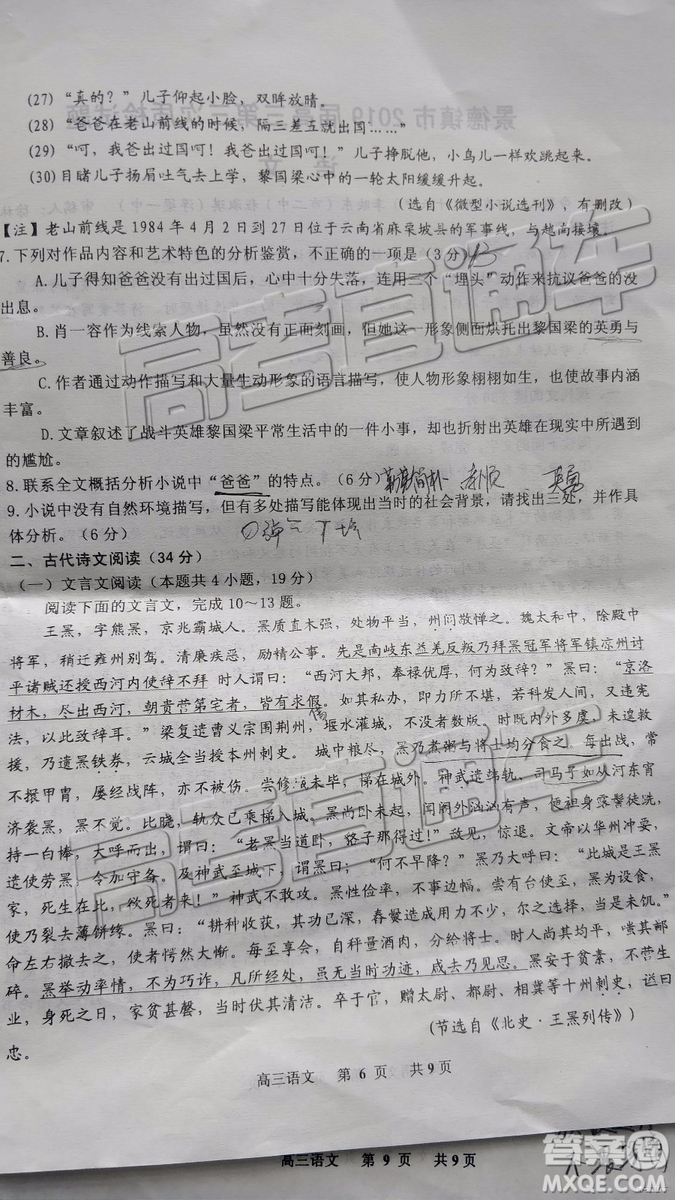 (27) “真的？”儿子仰起小脸，双眸放光。
(28) “爸爸在老山前线的时候，隔三差五就出国……”
(29) “呵，我爸出过国呵！我爸出过国呵！”儿子挣脱他，小鸟儿一样欢跳起来。
(30) 目睹儿子扬眉吐气去上学，黎国梁心中的一轮太阳缓缓升起。
(选自《微型小说选刊》，有删改)
【注】老山前线是 1984 年 4 月 2 日到 27 日位于云南省麻栗坡县的军事线，与越南接壤。
7.下列对作品内容和艺术特色的分析鉴赏，不正确的一项是（3 分）
A.儿子得知爸爸没有出过国后，心中十分失落，连用三个“埋头”动作来抗议爸爸的没
出息。
B.肖一容作为线索人物，虽然没有正面刻画，但她这一形象侧面烘托出黎国梁的英勇与
善良。
C.作者通过动作描写和大量生动形象的语言描写，使人物形象栩栩如生，也使故事内涵
丰富。
D.文章叙述了战斗英雄黎国梁平常生活中的一件小事，却也折射出英雄在现实中所遇到
的尴尬。
8.联系全文概括分析小说中“爸爸”的特点。（6 分）
9.小说中没有自然环境描写，但有多处描写能体现出当时的社会背景，请找出三处，并作具
体分析。（6 分）
二、古代诗文阅读（34 分）
（一）文言文阅读（本题共 4 小题，19 分）
阅读下面的文言文，完成 10～13 题。
王罴，字熊罴，京兆霸城人。罴质直木强，处物平当，州闾敬惮之。魏太和中，除殿中
将军，稍迁雍州别驾。清廉疾恶，励精公事。先是南岐东益羌反叛乃拜罴冠军将军镇凉州讨
平诸贼还授西河内使辞不拜 时人谓曰：“西河大邦，奉禄优厚，何为致辞？”罴曰：“京洛
材木，尽出西河，朝贵营第宅者，皆有求假。如其私办，即力所不堪，若科发人间，又违宪
法，以此致辞耳。”梁复遣曹义宗围荆州，堰水灌城，不没者数版。时内外多虞，未遑救
援，乃遗罴铁券，云城全当授本州刺史。 城中粮尽，罴乃煮粥与将士均分食之。每出战，
不擐甲胄，屡经战阵，亦不被伤。尝修城未毕，梯在城外。神武遣韩轨、司马子如从河东宵
济袭罴，罴不觉。比晓，轨众已乘梯入城。罴尚卧未起，闻阁外汹汹有声，便袒身露髻徒跣，
持一白棒，大呼而出，谓曰：“老罴当道卧，貉子那得过！”敌见，惊退。文帝以华州冲要，
遣使劳罴，令加守备。及神武至城下，谓罴曰：“何不早降？”罴乃大呼曰：“此城是王罴
家，死生在此，欲死者来！”神武不敢攻。罴性俭率，不事边幅。尝有台使至，罴为设食，
使乃裂去薄饼缘。罴曰：“耕种收获，其功已深，舂爨造成用力不少，尔之选择，当是未饥。”
命左右撤去之，使者愕然大惭。每至享会，自秤量酒肉，分给将士。时人尚其均平，嗤其鄙
碎。罴举动率情，不为巧诈，凡所经处，虽无当时功迹，去乃见思。罴安于贫素，不营生
业，身死之日，家贫甚罄，当时伏其清洁。卒于官，赠太尉、都尉、相冀等十州刺史，谥曰
忠。
（节选自《北史·王罴列传》）
高三语文 第 6 页 共 9 页
高三语文 第 9 页 共 9 页
高考直通车
高考直通车
答案圈
MXQE.COM